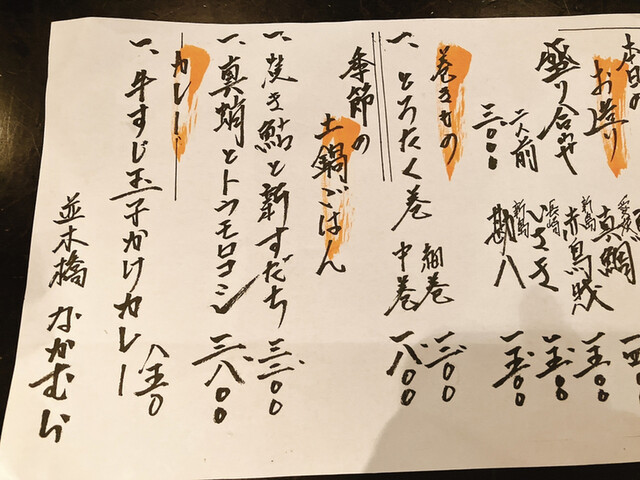 本日の
お造り
盛り合わせ
二人前
三〇〇〇
愛媛
真鯛
一五〇〇
新島
赤烏賊
一五〇〇
長崎
いさき
一五〇〇
新島
勘八
一五〇〇
巻きもの
一、とろたく巻
細巻
一三〇〇
中巻
一八〇〇
季節の
土鍋ごはん
一、焼き鮎と新すだち
三三〇〇
一、真蛸とトウモロコシ
三八〇〇
カレー
一、牛すじ玉子かけカレー
八五〇
並木橋 なかむら